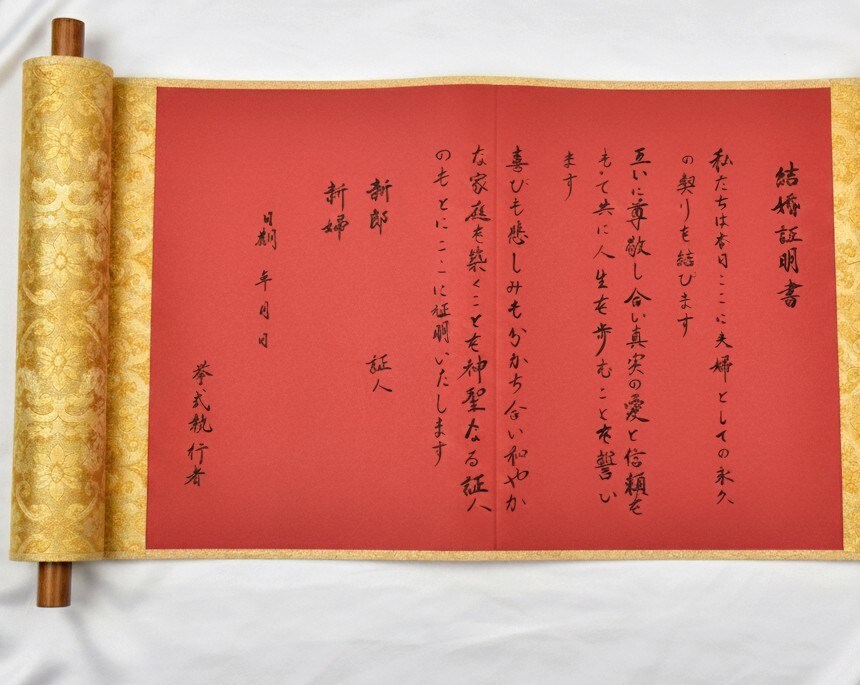 結婚証明書
私たちは本日ここに夫婦としての永久
の契りを結びます
互いに尊敬し合い真実の愛と信頼を
もって共に人生を歩むことを誓い
ます
喜びも悲しみも分かち合い和やか
な家庭を築くことを神聖なる証人
のもとにここに証明いたします
新郎
証人
新婦
日期 年 月 日
挙式執行者